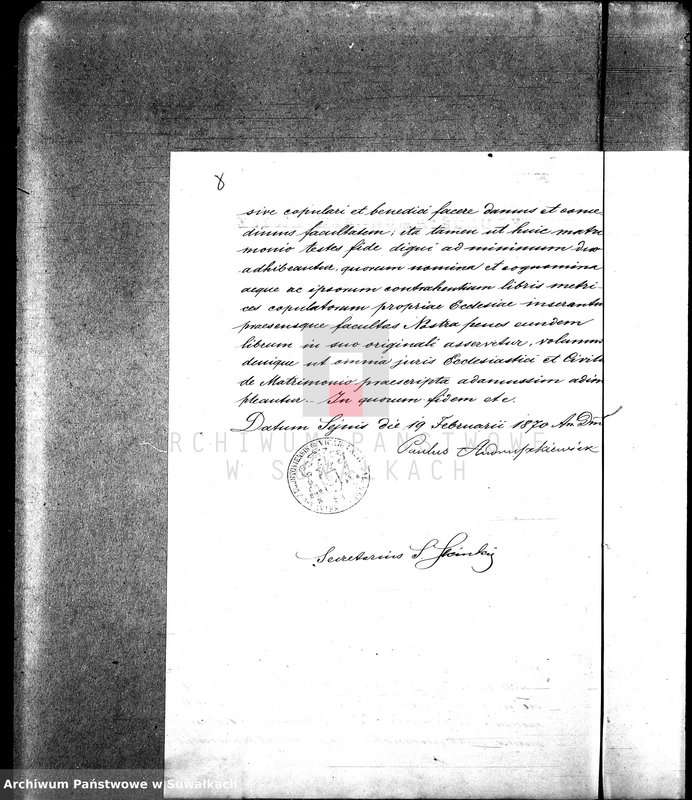 8
sive copulari et benedici facere damus et conce-
dimus facultatem; ita tamen ut huic matri
monio testes fide digni ad minimum duo
adhibeantur, quorum nomina et cognomina
aeque ac ipsorum contrahentium libris metri-
ces copulatorum propriae Ecclesiae inserantur
praesensque facultas Nostra penes eundem
librum in suo originali asservetur, volumus
denique ut omnia juris Ecclesiastici et Civilis
de Matrimonio praescripta adamussim adim
pleantur. In quorum fidem etc.
Datum Sejnis die 19 Februarii 1870 An. Dni
Paulus Andruszkiewicz
ARCHIWUM PAŃSTWOWE
W SUWAŁKACH
Secretarius S
Archiwum Państwowe w Suwałkach